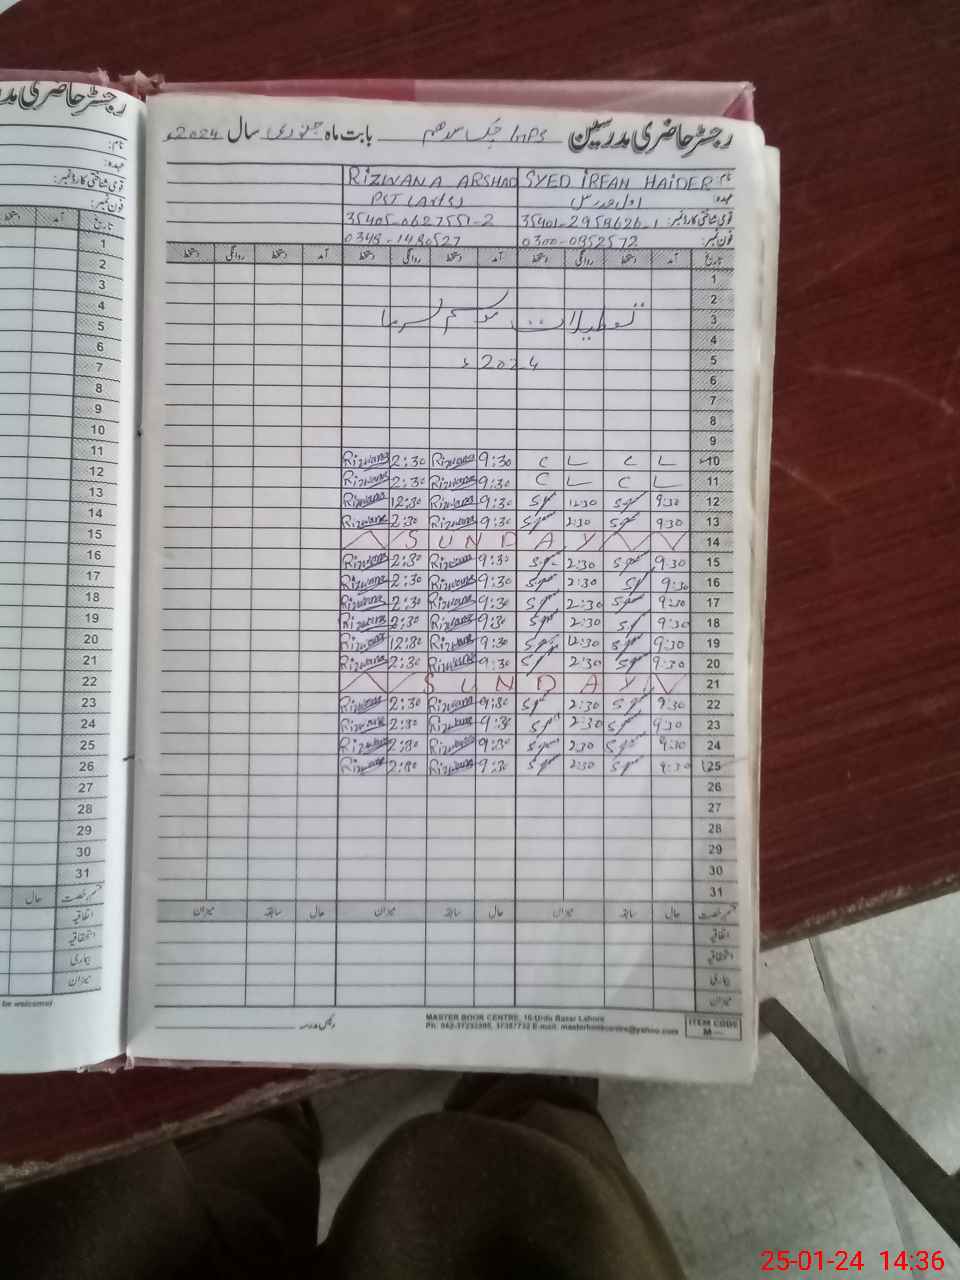 رجسٹر حاضری مدرسین GMPS بابت ماہ جنوری سال 2024ء
نام: SYED IRFAN HAIDER RIZWANA ARSHAD
عہدہ: اول مدرس PST (Arts)
قومی شناختی کارڈ نمبر: 35401-2958626-1 35405-0627551-2
فون نمبر: 0300-0852572 0348-1480527
تاریخ آمد دستخط روانگی دستخط آمد دستخط روانگی دستخط آمد دستخط روانگی دستخط
1
2
3 تعطیلات موسم سرما
4
5 2024ء
6
7
8
9
10 L C L C 9:30 Rizwana 2:30 Rizwana
11 L C L C 9:30 Rizwana 2:30 Rizwana
12 9:30 12:30 9:30 Rizwana 12:30 Rizwana
13 9:30 2:30 9:30 Rizwana 2:30 Rizwana
14 SUNDAY
15 9:30 2:30 9:30 Rizwana 2:30 Rizwana
16 9:30 2:30 9:30 Rizwana 2:30 Rizwana
17 9:30 2:30 9:30 Rizwana 2:30 Rizwana
18 9:30 2:30 9:30 Rizwana 2:30 Rizwana
19 9:30 12:30 9:30 Rizwana 12:30 Rizwana
20 9:30 2:30 9:30 Rizwana 2:30 Rizwana
21 SUNDAY
22 9:30 2:30 9:30 Rizwana 2:30 Rizwana
23 9:30 2:30 9:30 Rizwana 2:30 Rizwana
24 9:30 2:30 9:30 Rizwana 2:30 Rizwana
25 9:30 2:30 9:30 Rizwana 2:30 Rizwana
26
27
28
29
30
31
قسم رخصت حال سابقہ میزان حال سابقہ میزان حال سابقہ میزان
اتفاقیہ
استحقاقیہ
بیماری
میزان
MASTER BOOK CENTRE, 10-Urdu Bazar Lahore
E-mail: masterbookcentre@yahoo.com
ITEM CODE
M—
رئیس مدرسہ
رجسٹر حاضری
نام:
عہدہ:
قومی شناختی کارڈ نمبر:
فون نمبر:
تاریخ آمد دستخط
1
2
3
4
5
6
7
8
9
10
11
12
13
14
15
16
17
18
19
20
21
22
23
24
25
26
27
28
29
30
31
قسم رخصت حال
اتفاقیہ
استحقاقیہ
بیماری
میزان
be welcome)
25-01-24 14:36